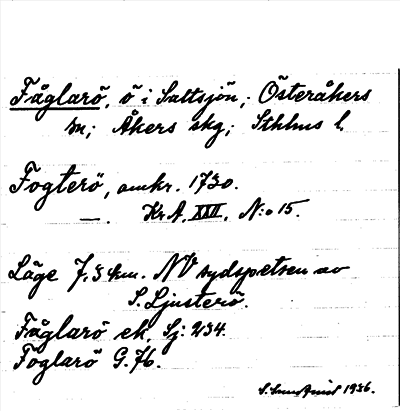 Fåglarö, ö i Saltsjön; Österåkers
sn; Åkers skg; Sthlms l.
Fogterö, omkr. 1730.
—. Kr A. XXII. N:o 15.
Läge 7,5 km. NV sydspetsen av
S. Ljusterö.
Fåglarö ek. Sj: 234.
Foglarö G. 76.
1936.